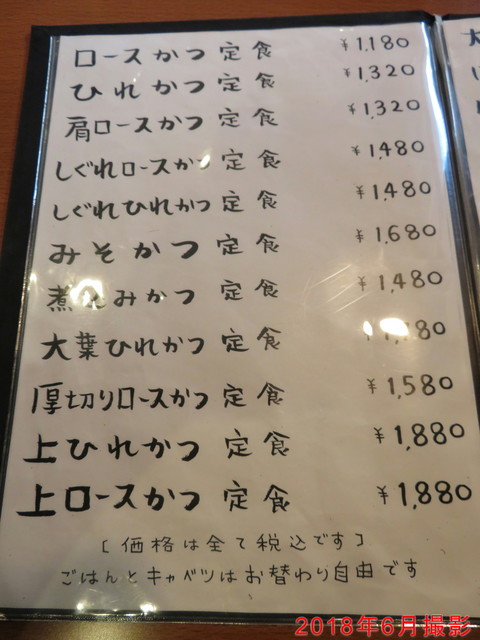 ロースかつ定食 ¥1,180
ひれかつ定食 ¥1,320
肩ロースかつ定食 ¥1,320
しぐれロースかつ定食 ¥1,480
しぐれひれかつ定食 ¥1,480
みそかつ定食 ¥1,680
煮込みかつ定食 ¥1,480
大葉ひれかつ定食
厚切りロースかつ定食 ¥1,580
上ひれかつ定食 ¥1,880
上ロースかつ定食 ¥1,880
[価格は全て税込です]
ごはんとキャベツはお替わり自由です
大
2018年6月撮影